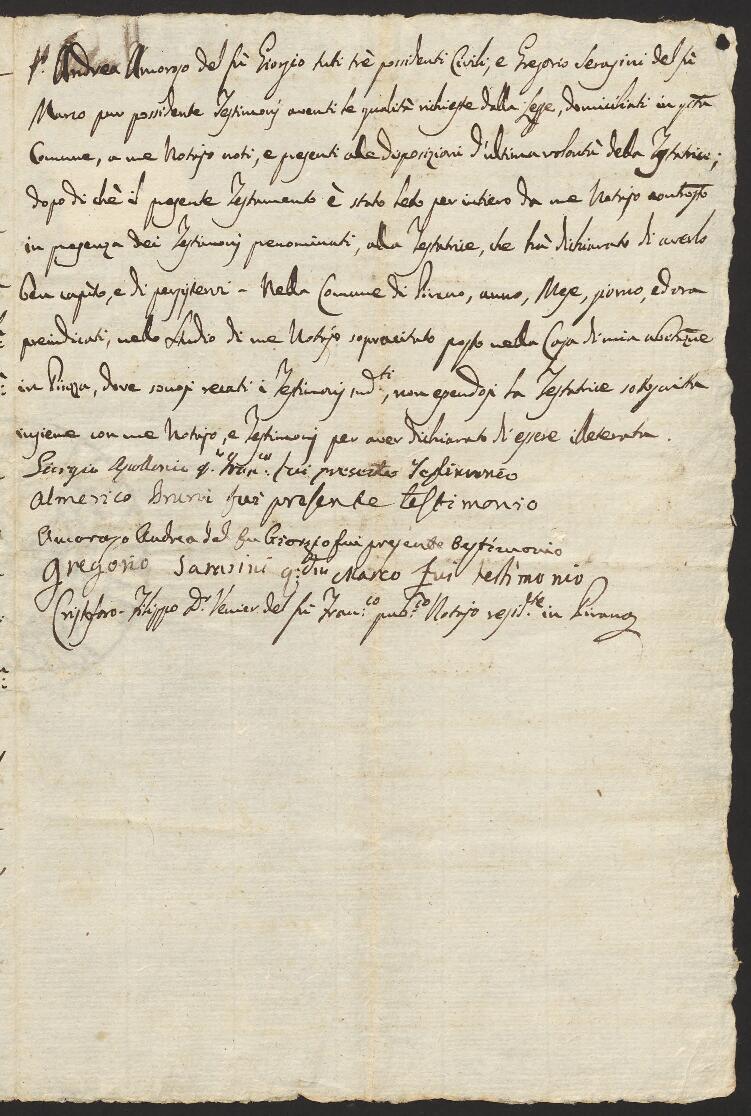 Sr. Andrea Amoroso del fù Giorgio tuti trè possidenti Civili, e Gregorio Serasini del fù
Marco pur possidente Testimonj aventi le qualità richieste dalla Legge, domiciliati in qsta
Comune, a me Notajo noti, e presenti alle disposizioni d'ultima volontà della Testatrice;
dopo di chè il presente Testamento è stato letto per intiero da me Notajo
in presenza dei Testimonj prenominati, alla Testatrice, che hà dichiarato di averlo
ben capito, e di persistervi - Nella Comune di Pirano, anno, Mese, giorno, ed ora
preindicati, nello studio di me Notajo sopracitato posto nella Casa di mia abitazne
in Piazza, dove sonosi recati i Testimonj sudti, non essendosi la Testatrice sottoscritta
insieme con me Notajo, e Testimonj per aver dichiarato di essere illeterata.
Giorgio Apollonio qm Franco: fui presente Testimonio
Almerico Bruni fui presente testimonio
Amoroso Andrea del fu Giorgio fui presente testimonio
Gregorio Sarasini q: diu Marco fui testimonio
Cristoforo-Filippo Dr Venier del fù Fran:co pub:co Notajo resid:te in Pirano